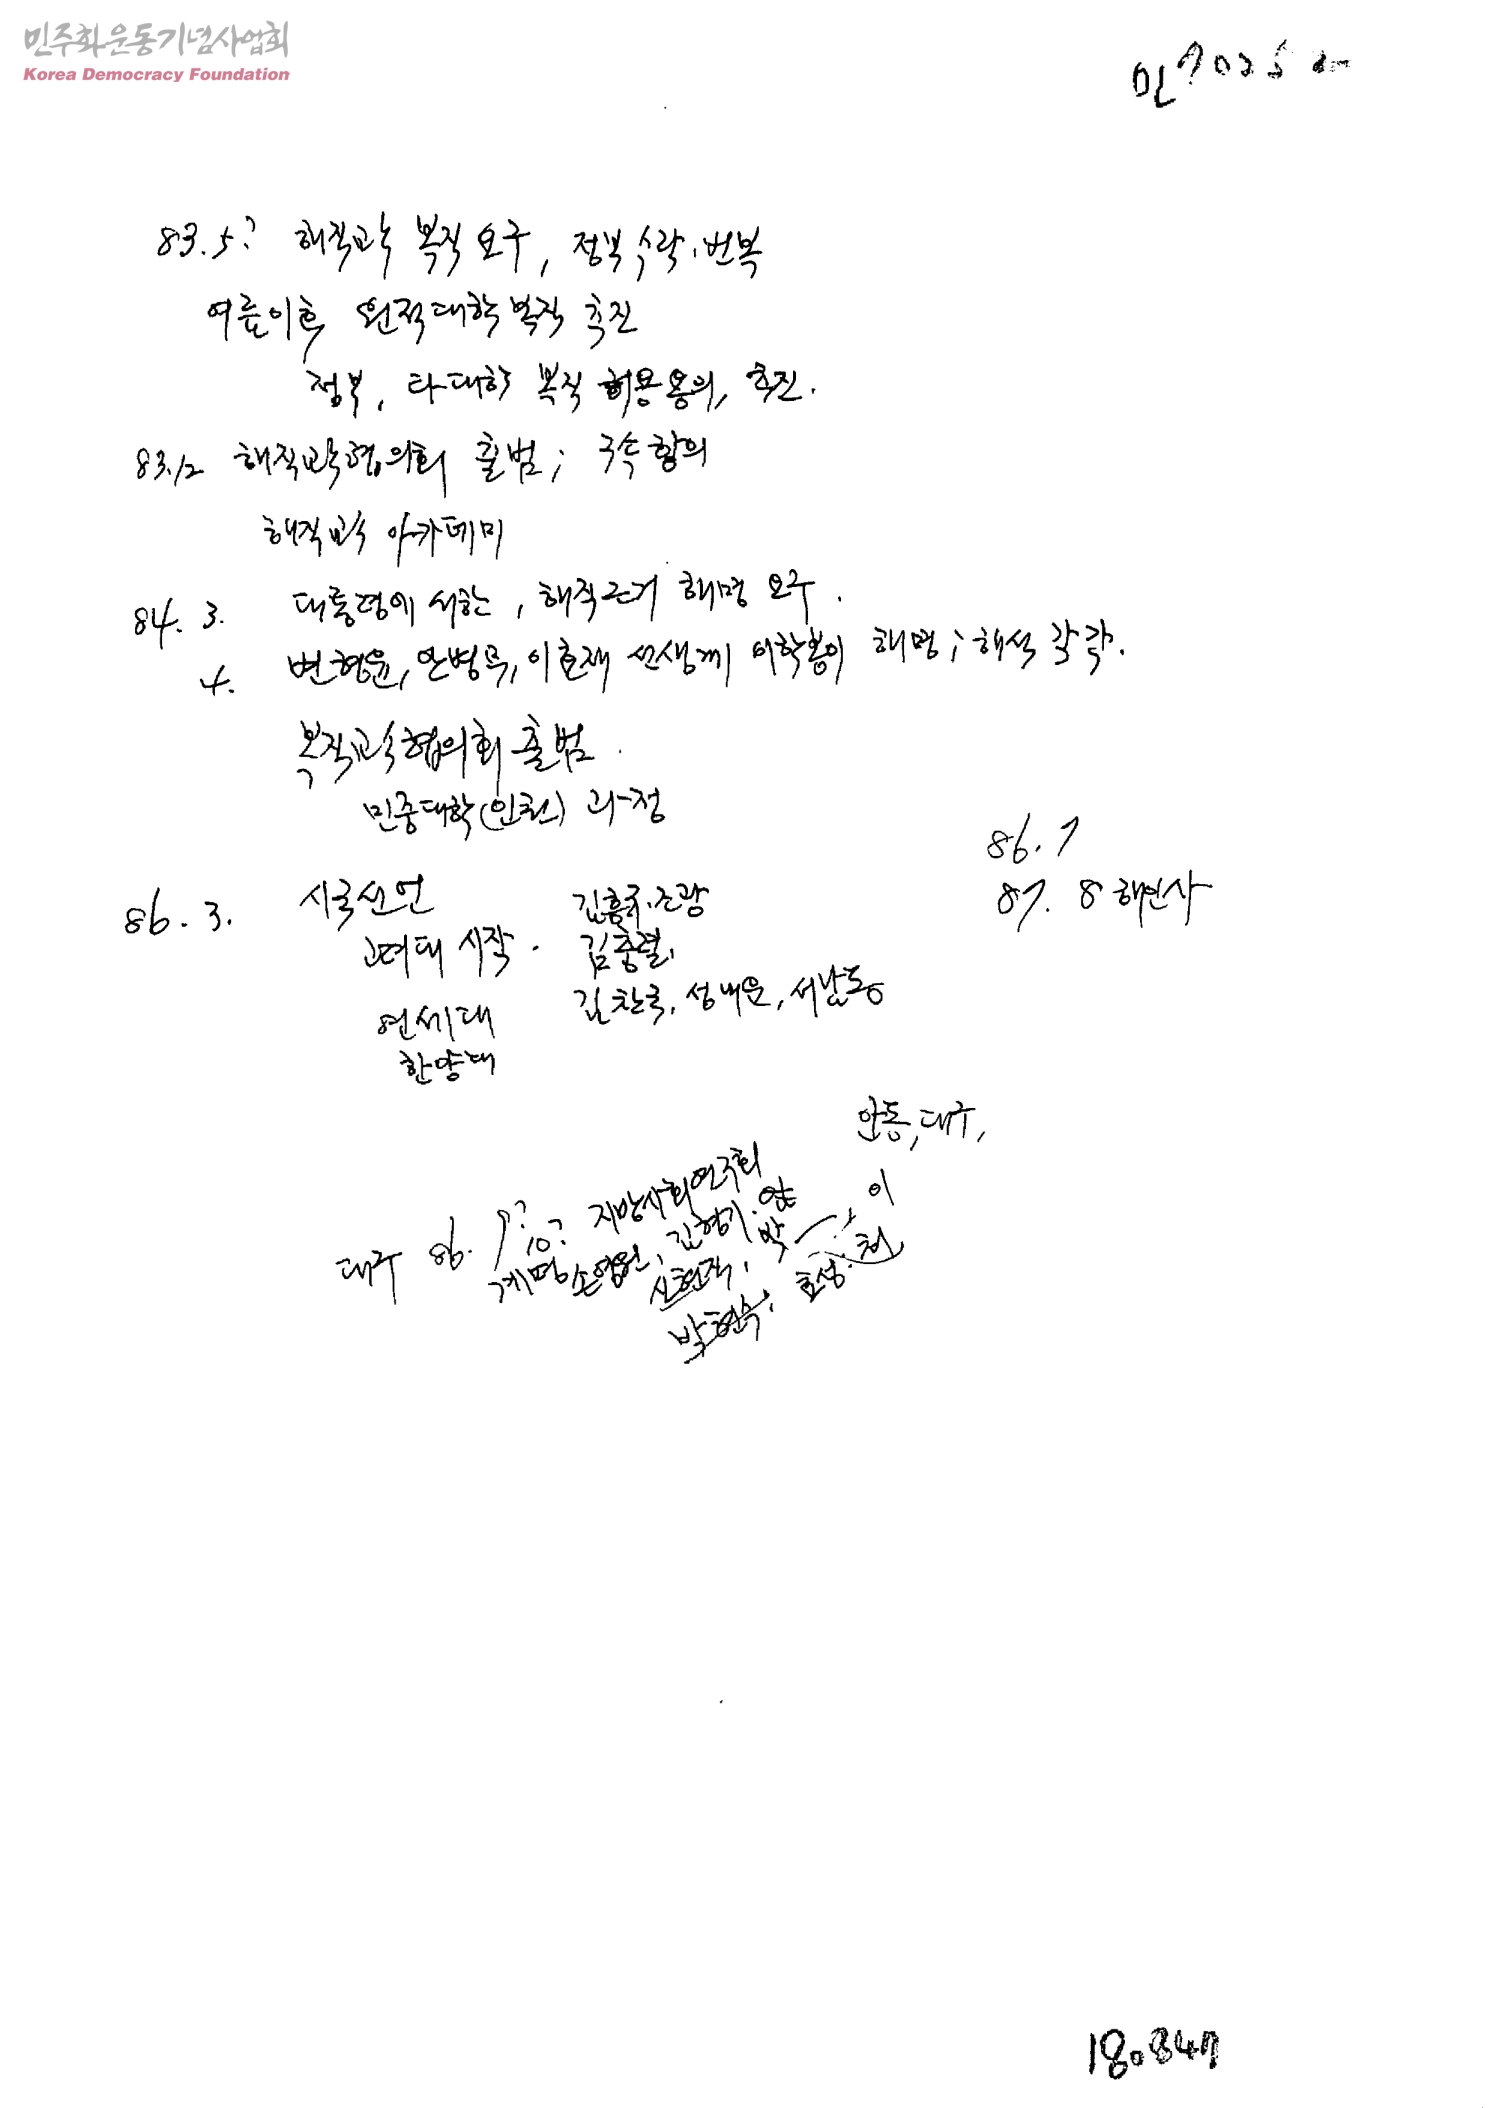 민주화운동기념사업회
Korea Democracy Foundation
83.5? 해직교수 복직 요구, 정부 수락·번복
여름이후 원적대학복직 촉진
정부, 타대학 복직 허용용의, 촉진.
83.12 해직교수협의회 출범; 구속 항의
해직교수 아카데미
84. 3. 대통령에 서한, 해직근거 해명 요구.
4. 변형윤, 안병무, 이효재 선생께 이학봉이 해명; 해석 각각.
복직교수협의회 출범.
민중대학(인천) 과정
86. 7
87. 8 해인사
86. 3. 시국선언 김흥규·조광
고려대 시작. 김충렬,
연세대 김찬국, 성내운, 서남동
한양대
안동, 대구,
대구 86. 9? 10? 지방사회연구회
계명 손영원, 김형기·
신현직, 박 이
박현수, 효성·
18.0847